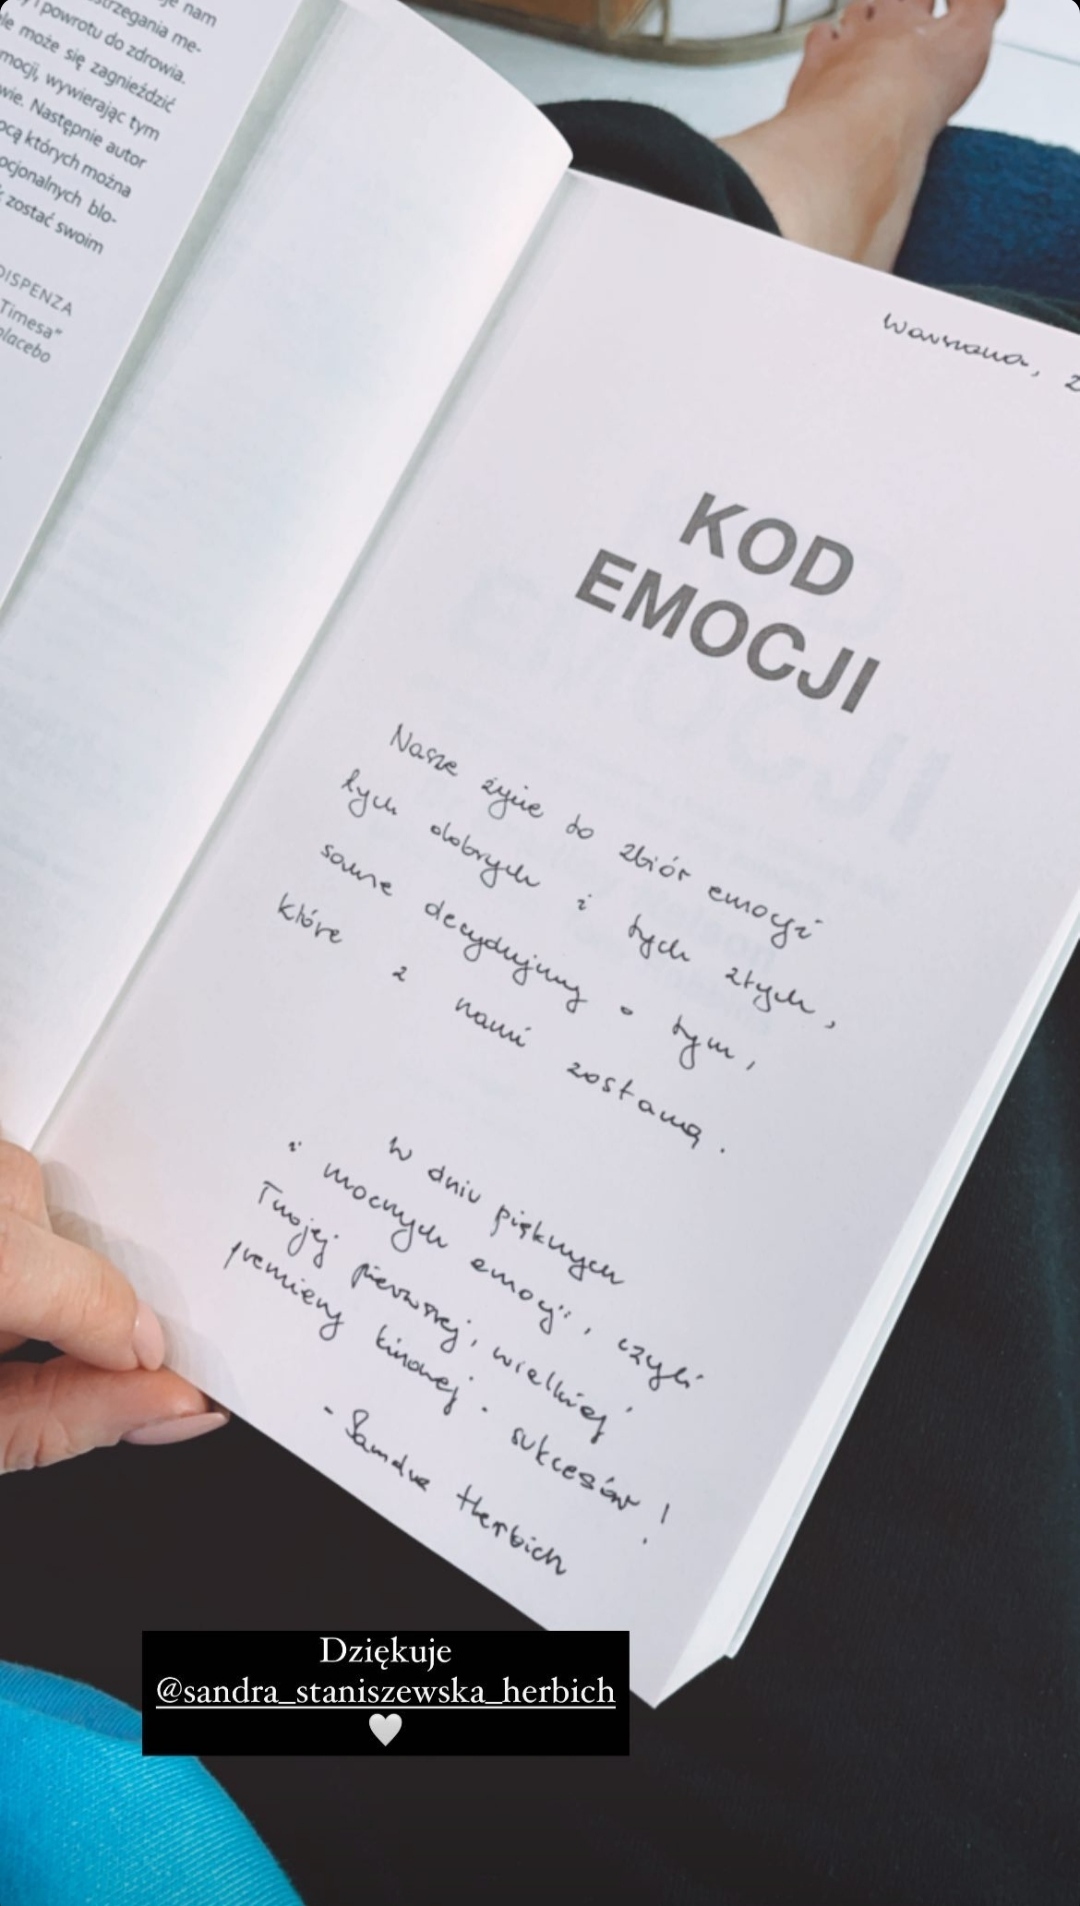 nam
strzegania me-
i powrotu do zdrowia.
le może się zagnieździć
mocji, wywierając tym
wie. Następnie autor
ocą których można
ocjonalnych blo-
zostać swoim
DISPENZA
Timesa"
placebo
Warszawa, 2
KOD
EMOCJI
Nasze życie to zbiór emocji
tych dobrych i tych złych,
same decydujemy o tym,
które z nami zostaną.
W dniu pięknych
i mocnych emocji, czyli
Twojej pierwszej, wielkiej
premiery kinowej - sukcesów!
- Sandra Herbich
Dziękuje
@sandra_staniszewska_herbich
🤍